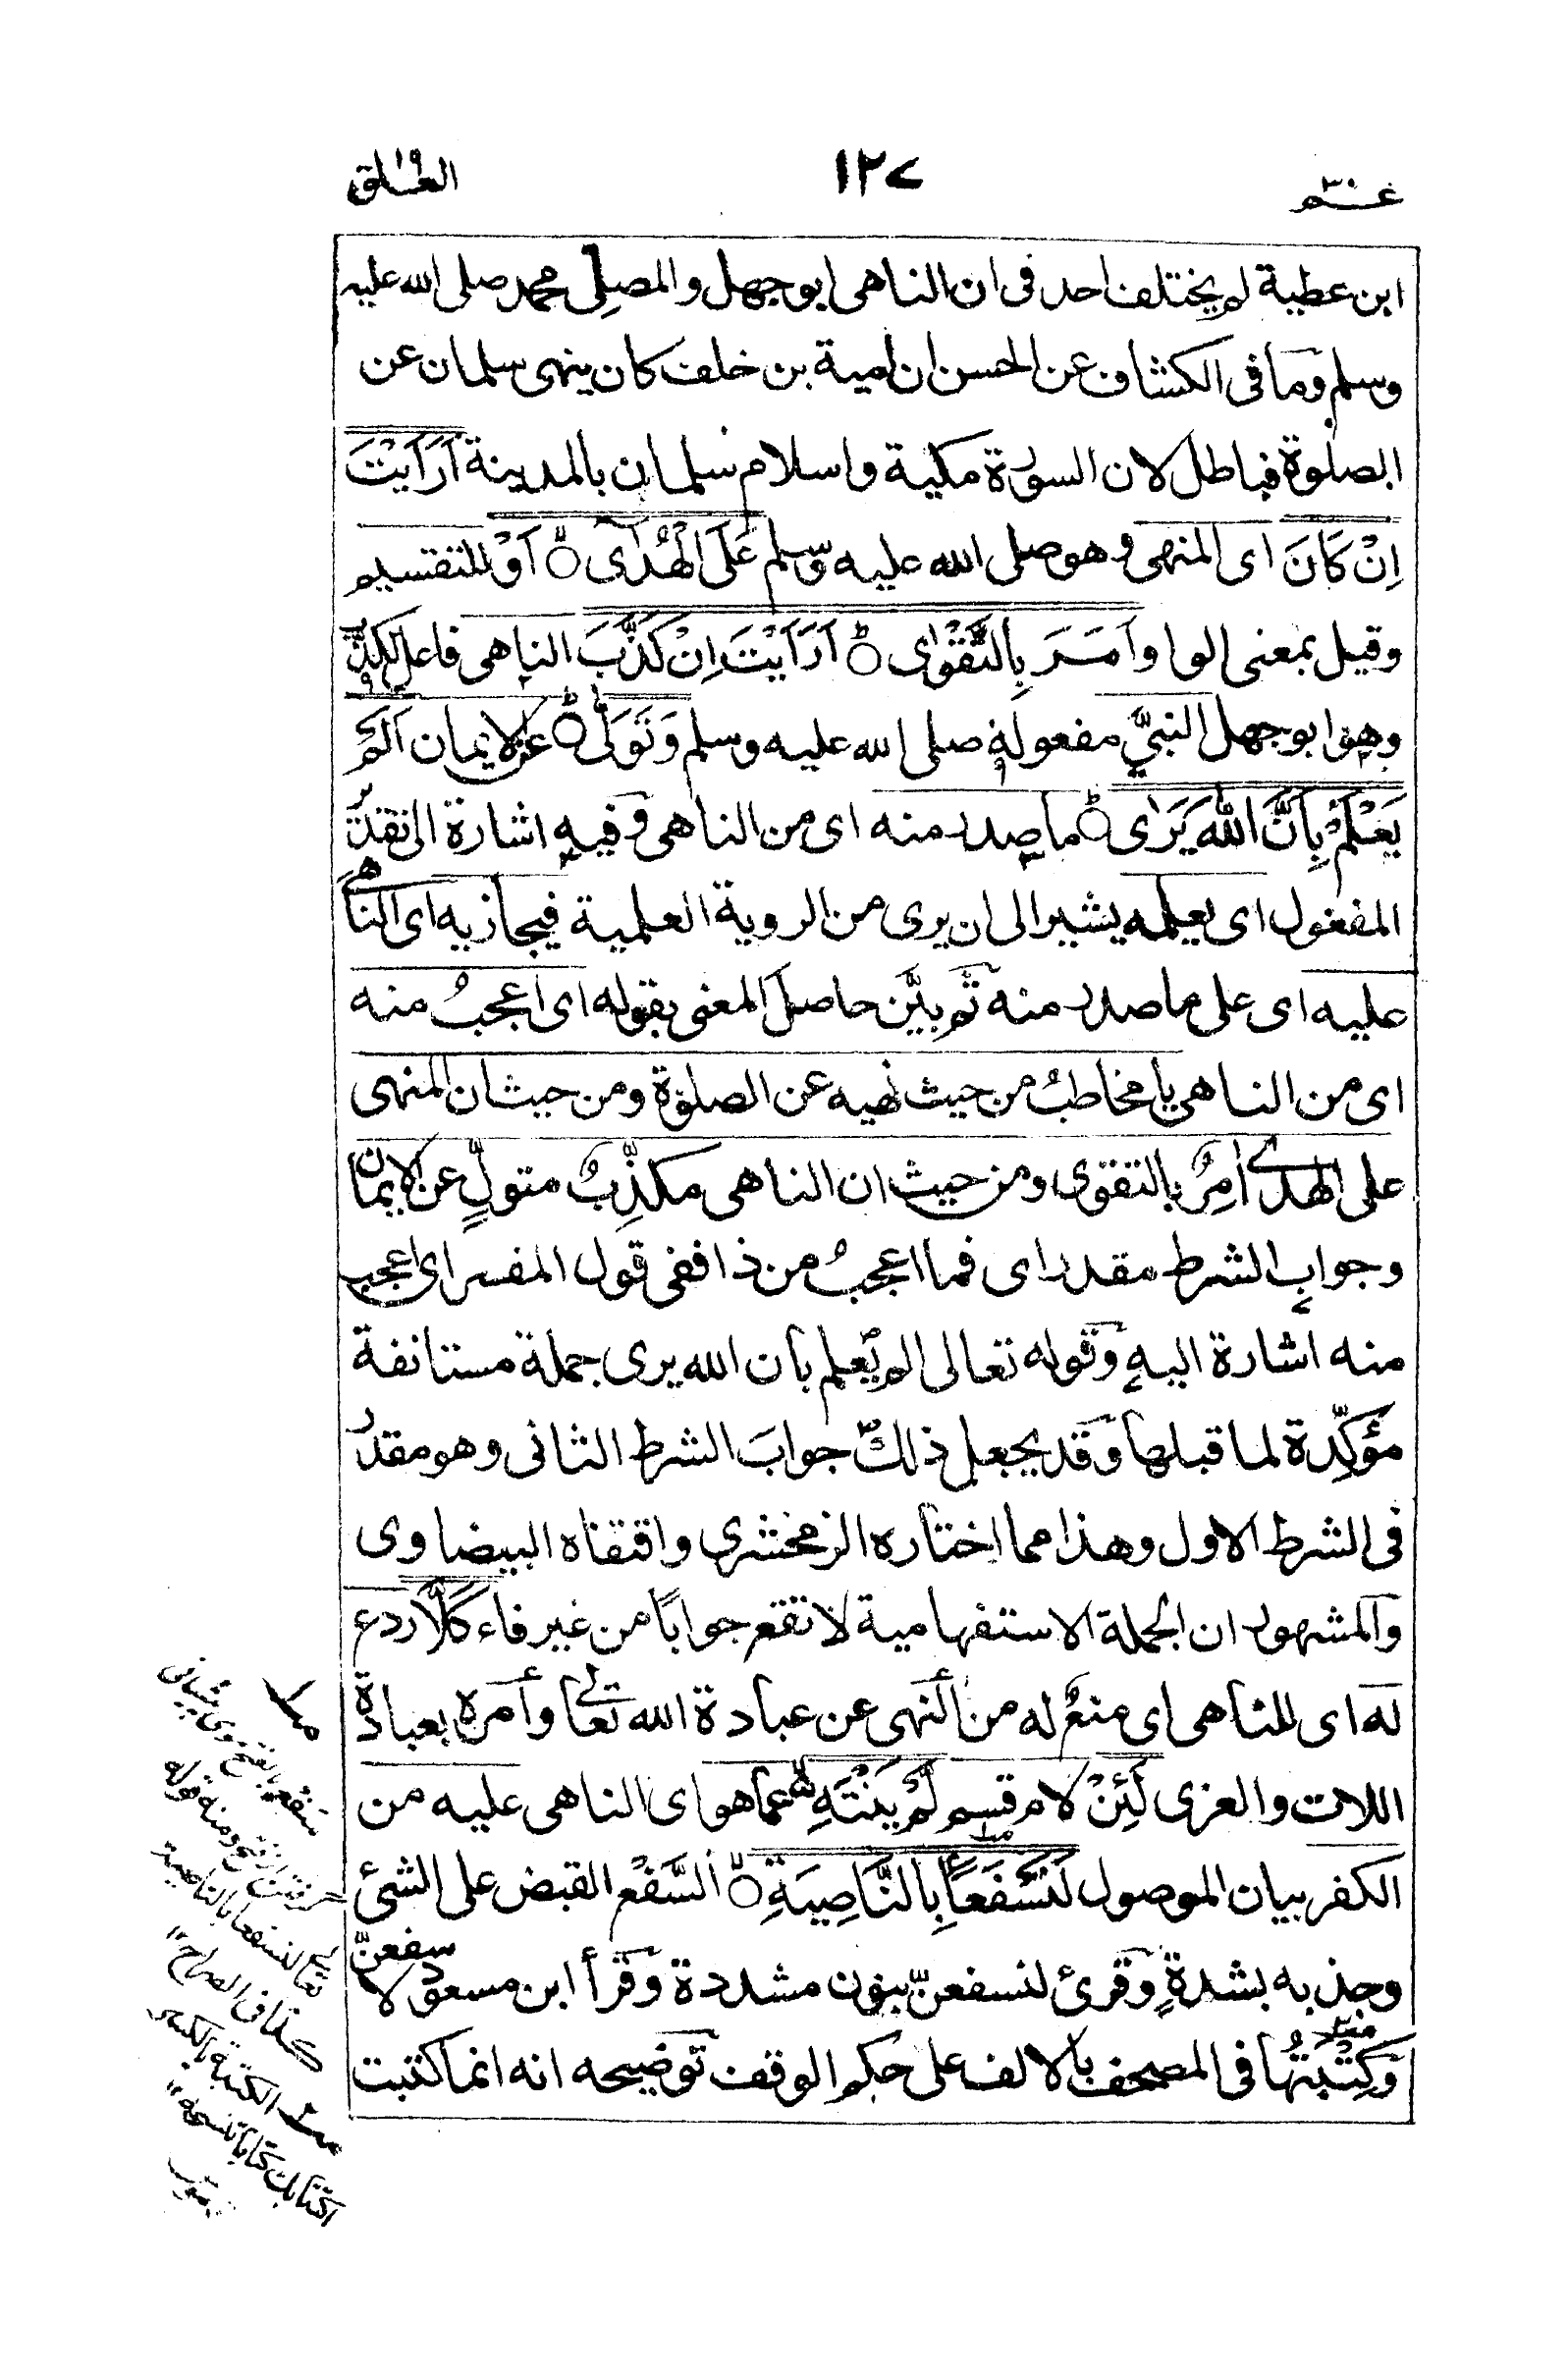 عـــم ٣٠
١٢٧
العلق
ابن عطية لم يختلف احد فى ان الناهى ابو جهل والمصلِى محمد صلى الله عليه
وسلم وما فى الكشاف عن الحسن ان امية بن خلف كان ينهى سلمان عن
الصلوة فباطل لان السورة مكية واسلام سلمان بالمدينة اَرَاَيْتَ
اِنْ كَانَ اى المنهى وهو صلى الله عليه وسلم عَلَى الْهُدٰى ۝ اَوْ للتقسيم
وقيل بمعنى الواو اَمَـرَ بِالتَّقْوٰى ۝ اَرَاَيْتَ اِنْ كَذَّبَ الناهى فاعل لكذّب
وهو ابو جهل النبىَّ مفعوله صلى الله عليه وسلم وَتَوَلّٰى ۝ عن الايمان اَلَمْ
يَعْلَمْ بِاَنَّ اللّٰهَ يَرٰى ۝ ما صدر منه اى من الناهى وفيه اشارة الى تقدير
المفعول اى يعلمه يشير الى ان يرى من الروية العلمية فيجازيه اى الناهى
عليه اى على ما صدر منه ثم بيَّن حاصل المعنى بقوله اى اعجبُ منه
اى من الناهى يا مخاطبُ من حيث نهيه عن الصلوة ومن حيث ان المنهى
على الهدى اٰمِرٌ بالتقوى ومن حيث ان الناهى مكذِّبٌ متولٍّ عن الايمان
وجواب الشرط مقدر اى فما اعجبُ من ذا ففى قول المفسر اى اعجب
منه اشارة اليه وقوله تعالى الم يعلم بان الله يرى جملة مستانفة
مؤكِّدة لما قبلها وقد يجعل ذلك جوابَ الشرط الثانى وهو مقدر
فى الشرط الاول وهذا مما اختاره الزمخشرى واقتفاه البيضاوى
والمشهور ان الجملة الاستفهامية لا تقع جوابًا من غير فاء كَلَّا ردع
له اى للناهى اى منعٌ له من النهى عن عبادة الله تعالى وأمره بعبادة
اللات والعزى لَئِنْ لام قسم لَّمْ يَنْتَهِ عما هو اى الناهى عليه من
الكفر بيان الموصول لَنَسْفَعًا بِالنَّاصِيَةِ ۝ اَلسَّفْع القبض على الشئ
وجذبه بشدةٍ وقرئ لنسفعنّ بنون مشددة وقرأ ابن مسعود لاسفعنّ
وَكِتْبَتُها فى المصحف بالالف على حكم الوقف توضيحه انه انما كتبت
سَفْع بالفتح
گرفتن
ومنه قوله
تعالى لنسفعا بالناصية
كذا فى الصراح ١٢
الكتبة بالكسر
اكتتابك كتابا تنسخه ١٢